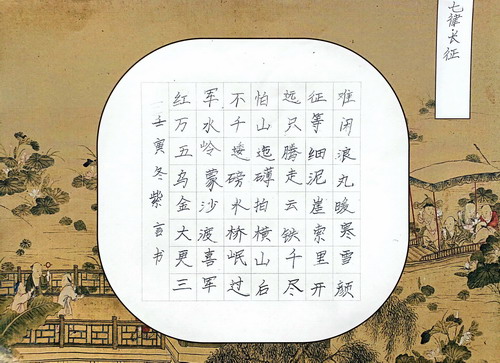 七律长征
红军不怕远征难
万水千山只等闲
五岭逶迤腾细浪
乌蒙磅礴走泥丸
金沙水拍云崖暖
大渡桥横铁索寒
更喜岷山千里雪
三军过后尽开颜
壬寅冬紫言书